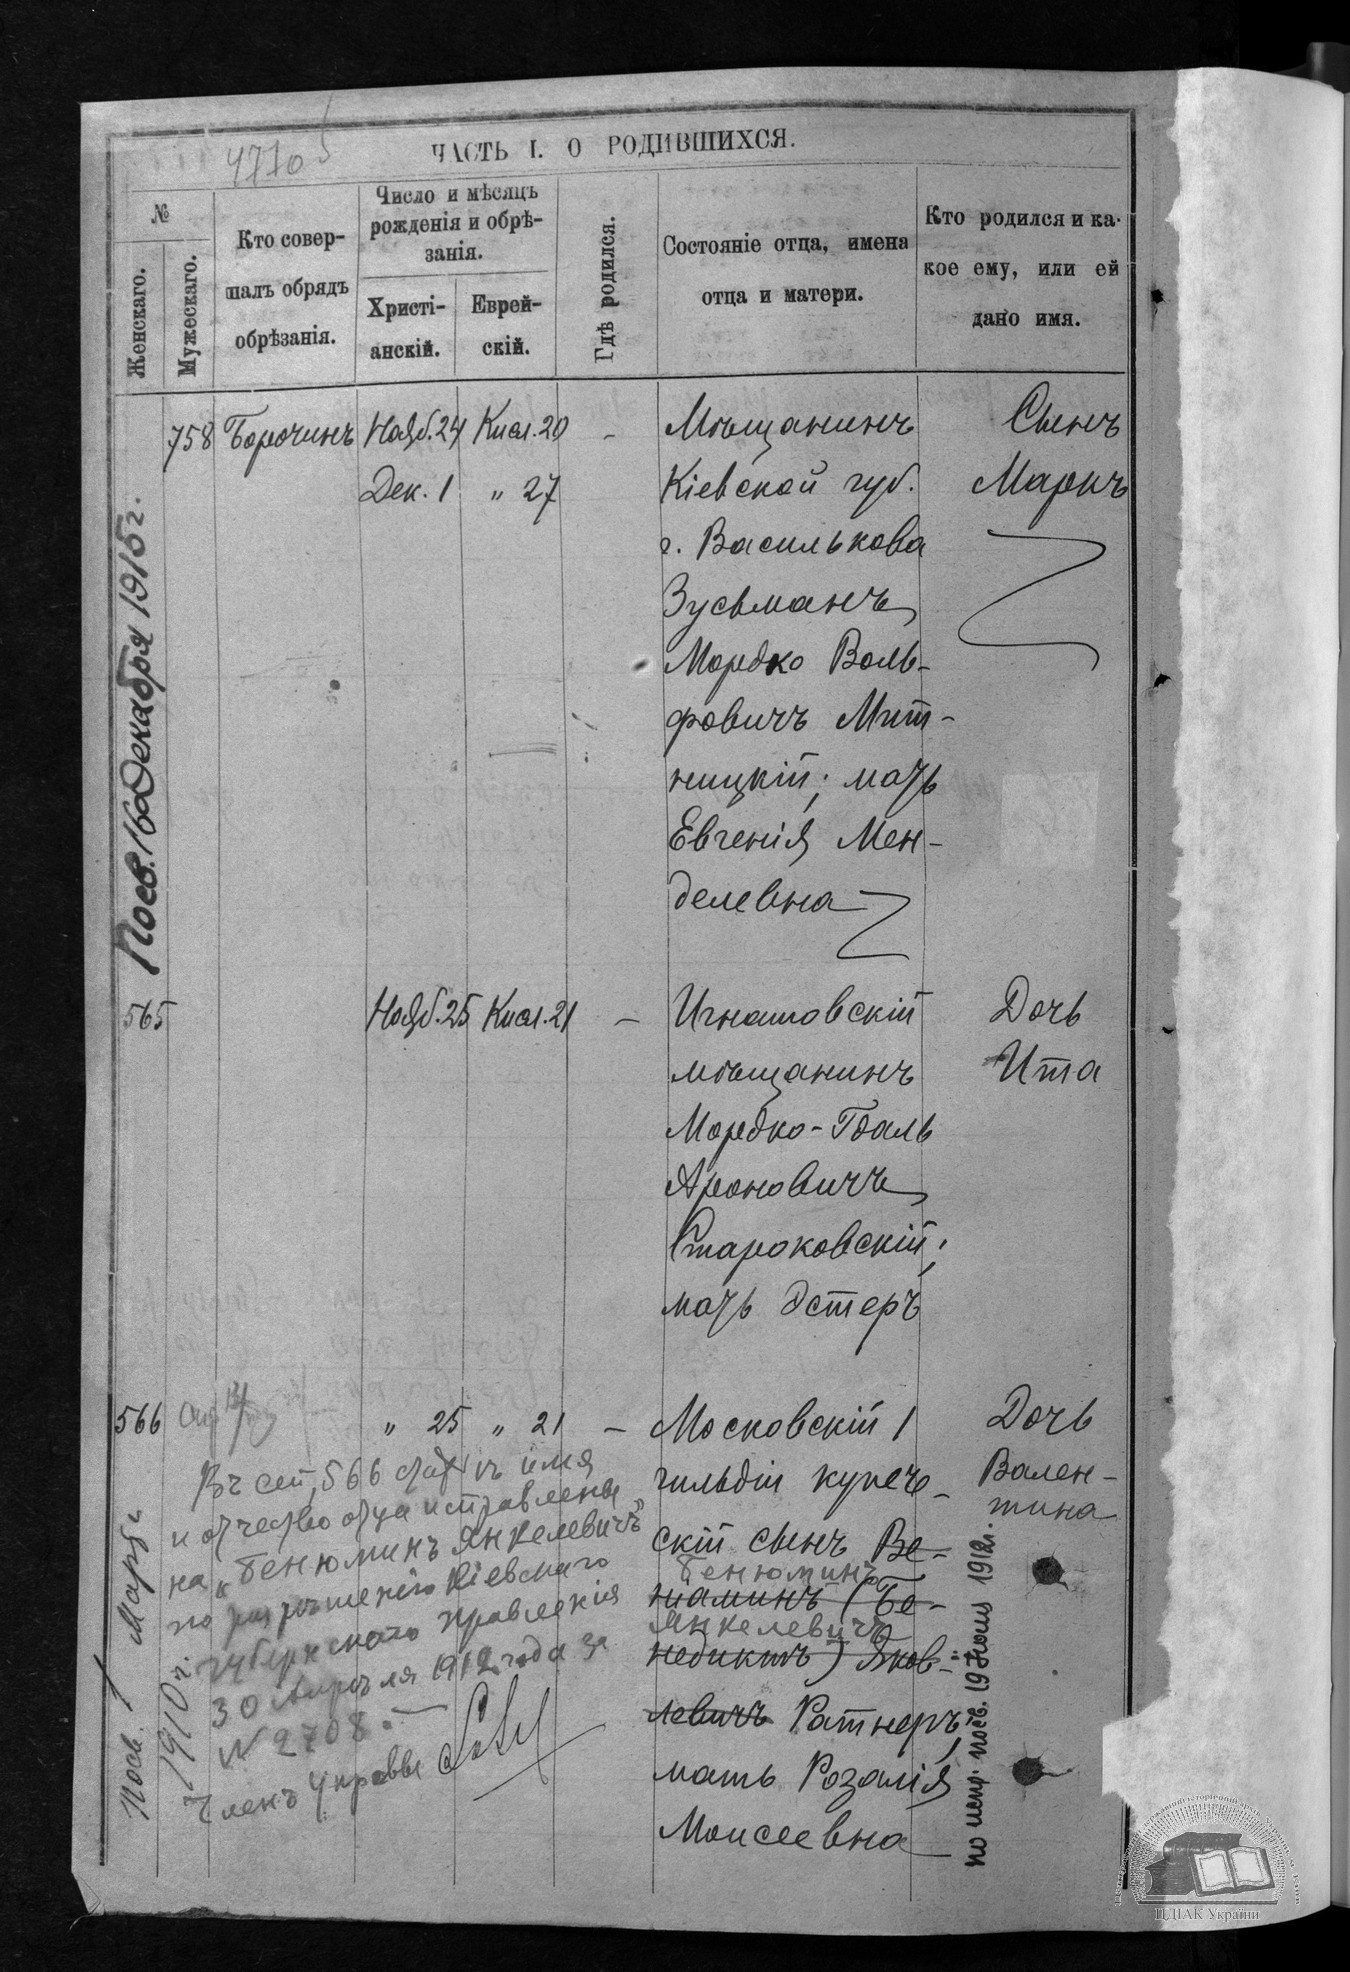 ЧАСТЬ I. О РОДИВШИХСЯ.
№
Женскаго.
Мужескаго.
Кто совер-
шалъ обрядъ
обрѣзанія.
Число и мѣсяцъ
рожденія и обрѣ-
занія.
Христі-
анскій.
Еврей-
скій.
Гдѣ родился.
Состояніе отца, имена
отца и матери.
Кто родился и ка-
кое ему, или ей
дано имя.
758 Борочинъ Нояб. 24 Кисл. 20 - Мѣщанинъ Сынъ
Дек. 1 " 27 Кіевской губ. Маркъ
г. Василькова
Зусьманъ
Мордко Воль-
фовичъ Мит-
ницкій; мать
Евгенія Мен-
делевна
Посв. 16 Декабря 1915 г.
565 Нояб. 25 Кисл. 21 - Игнатовскій Дочь
мѣщанинъ Ита
Мордко-Гдаль
Ароновичъ
Староковскій;
мать Эстеръ
566 " 25 " 21 - Московскій 1 Дочь
гильдіи купече- Вален-
скій сынъ Ве- тина
Бенюминъ
ніаминъ (Бе-
Янкелевичъ
недиктъ) Яков-
левичъ Ратнеръ,
мать Розалія
Моисеевна
Въ сей 566 стат имя
и отчество отца исправлены
на "Бенюминъ Янкелевичъ"
по разрѣшенію Кіевскаго
Губернскаго Правленія
30 Апрѣля 1912 года за
№ 2708.
Членъ Управы
Посв. 1 Марта
1910 г.
по испр. посв. 19 1912 г.
ЦДІАК України